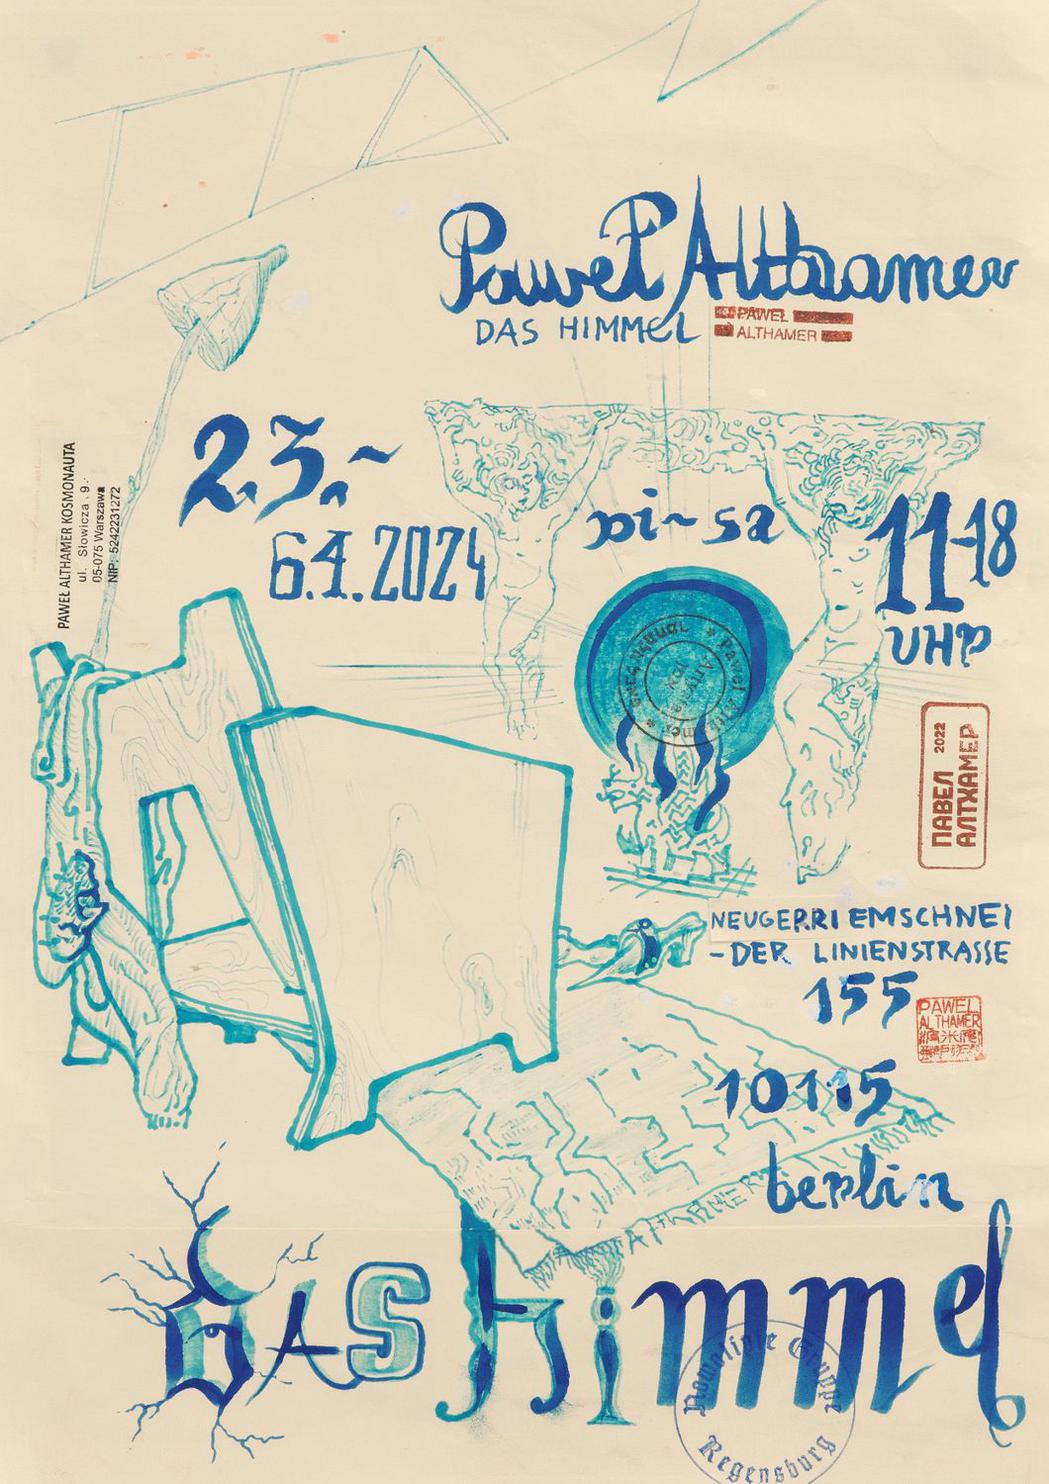 Paweł Althamer
DAS HIMMEL
PAWEŁ
ALTHAMER
2.3.~
6.4.2024
di~sa
11-18
UHR
PAWEŁ ALTHAMER KOSMONAUTA
ul. Słowicza 9
05-075 Warszawa
NIP: 5242231272
Paweł Althamer
ПАВЕЛ 2022
АЛТХАМЕР
NEUGERRIEMSCHNEI
-DER LINIENSTRASSE
155
PAWEL
ALTHAMER
10115
berlin
ALTHAMER
Das Himmel
Nowolipie Gruppe
Regensburg